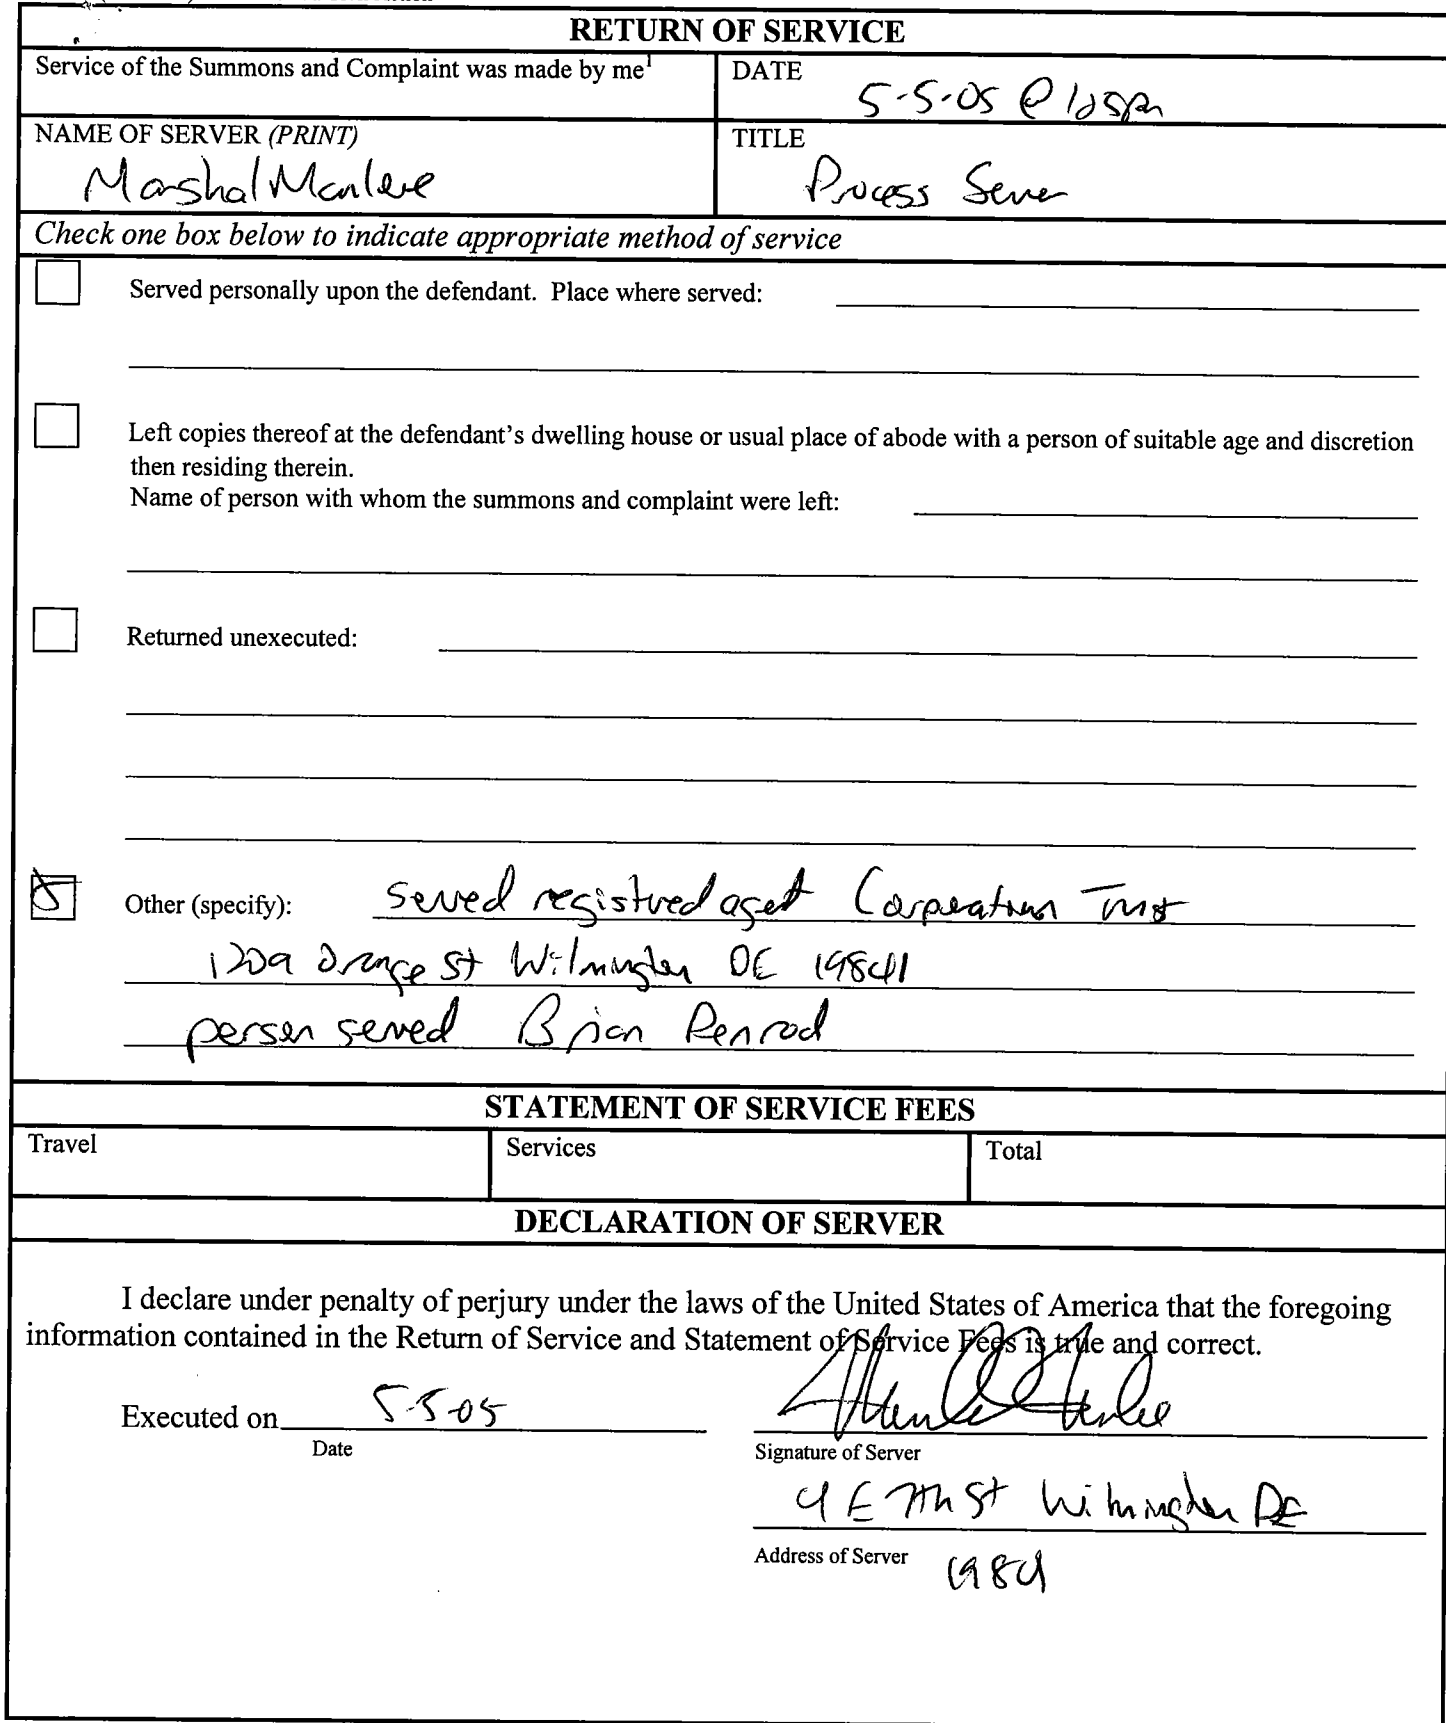 RETURN OF SERVICE
Service of the Summons and Complaint was made by me¹
DATE
5-5-05 @
NAME OF SERVER (PRINT)
Marshal Manlove
TITLE
Process Server
Check one box below to indicate appropriate method of service
Served personally upon the defendant. Place where served:
Left copies thereof at the defendant's dwelling house or usual place of abode with a person of suitable age and discretion
then residing therein.
Name of person with whom the summons and complaint were left:
Returned unexecuted:
Other (specify): served registred agent Corporation Trust
1209 Orange St Wilmington DE 19801
person served Brian Penrod
STATEMENT OF SERVICE FEES
Travel
Services
Total
DECLARATION OF SERVER
I declare under penalty of perjury under the laws of the United States of America that the foregoing
information contained in the Return of Service and Statement of Service Fees is true and correct.
Executed on 5-5-05
Date
Signature of Server
E 7th St Wilmington DE
Address of Server